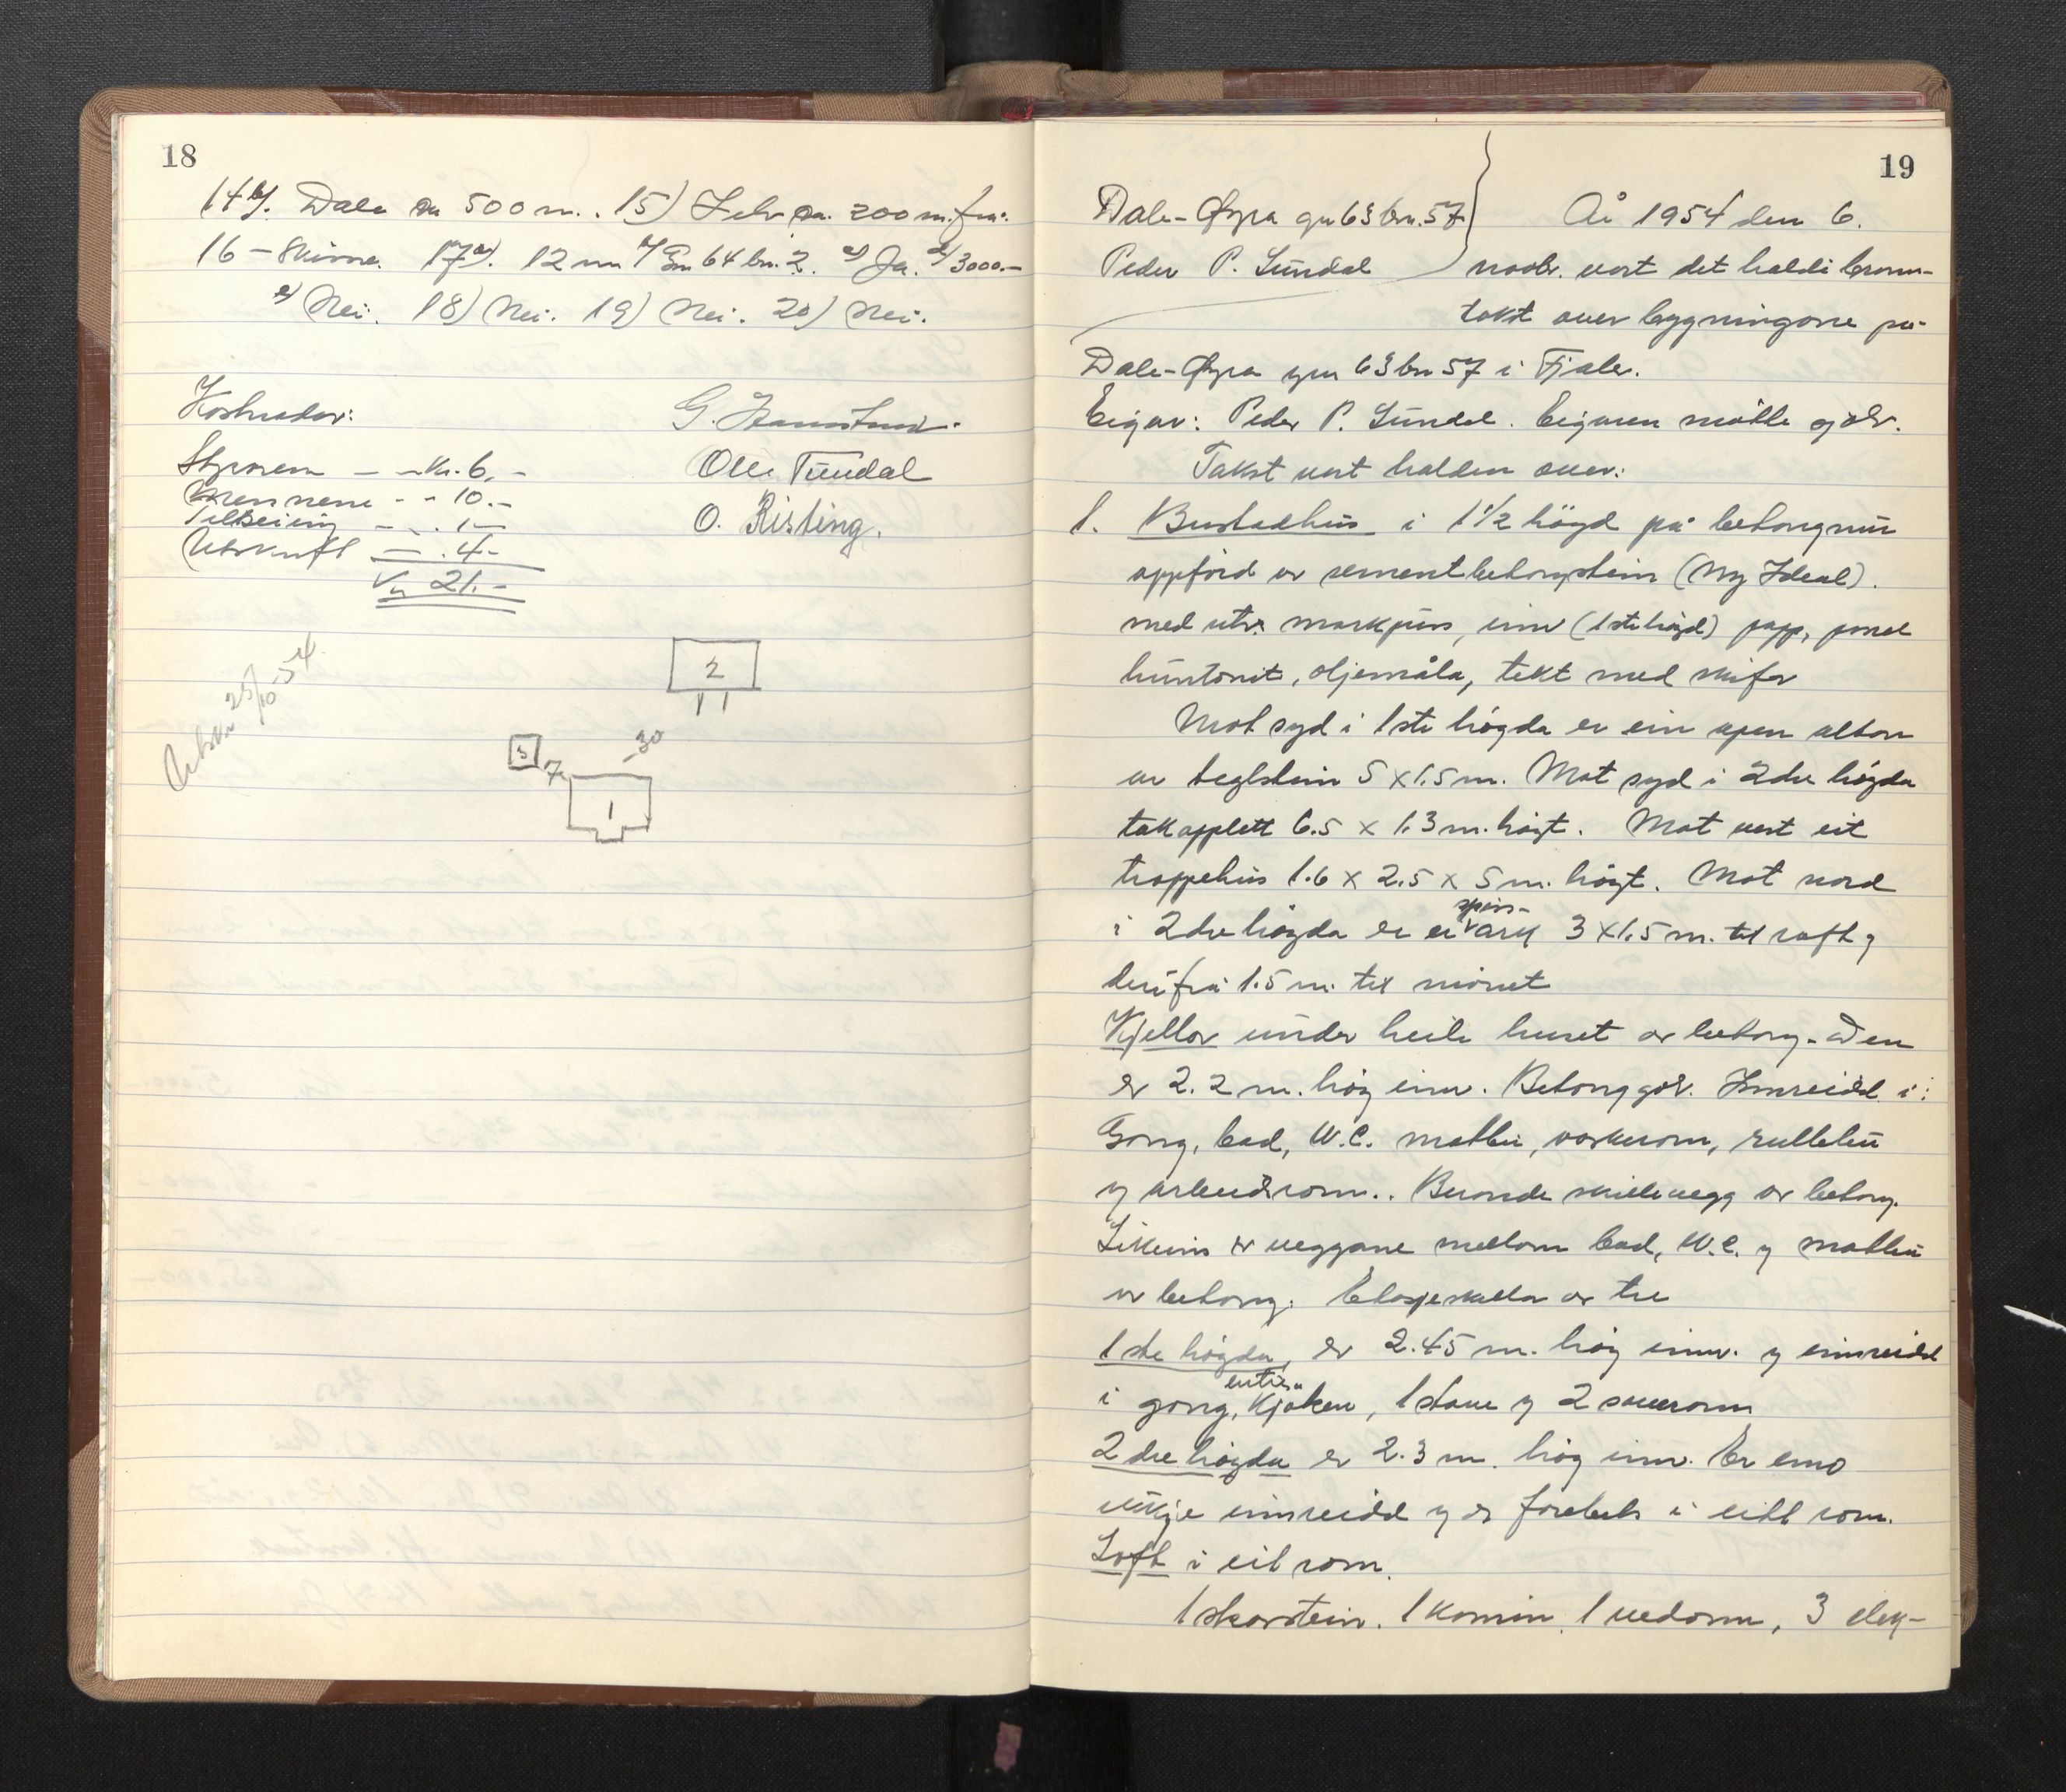 18
14 b). Dale ca 500 m. 15) Selv ca. 200 m. frå.
16 – Skivne. 17 a). 12 mm b) Gn 64 bn. 2. c) Ja. d) 3000.–
e) Nei. 18) Nei. 19) Nei. 20) Nei.
Kostnader:
Styraren – – kr. 6,–
Mennene – – 10.–
Tilseiing – – . 1.–
Utskrift – . 4.–
Kr 21.–
G.
Olai Tundal
O. Risting.
Utskr 25/10-54.
2
3
7
30
1
19
Dale-Øyra gn 63 bn. 57.
Peder P. Sundal
År 1954 den 6.
novbr. vart det halde brann-
takst over bygningane på
Dale-Øyra gn 63 bn 57 i Fjaler.
Eigar: Peder P. Sundal. Eigaren møtte sjølv.
Takst vart halden over:
1. Bustadhus i 1 1/2 høgd på betongmur
oppførd av sementbetongstein (Ny Ideal).
med utv. markpuss, innv (1ste høgd) papp, panel
huntonit, oljemåla, tekt med skifer
Mot syd i 1ste høgda er ein open altan
av teglstein 5 x 1.5 m. Mot syd i 2dre høgda
takopplett 6.5 x 1.3 m. høgt. Mot vest eit
trappehus 1.6 x 2.5 x 5 m. høgt. Mot nord
i 2dre høgda er ei spiss-ark 3 x 1.5 m. til raft og
derifrå 1.5 m. til mønet
Kjellar under heile huset av betong. Den
er 2.2 m. høg innv. Betonggolv. Innreidd i:
Gang, bad, W.C. matbu, vaskerom, rullebu
og arbeidsrom.. Berande skillevegg av betong.
Likeins er veggane mellom bad, W.C. og matbu
av betong. Etasjeskiller av tre
1ste høgda, er 2.45 m. høg innv. og innreidd
i gang, entre, kjøken, 1 stove og 2 soverom
2dre høgda er 2.3 m. høg innv. Er enno
ikkje innreidd og er førebels i eitt rom.
Loft i eit rom.
1 skorstein. 1 kamin. 1 vedomn, 3 elek-